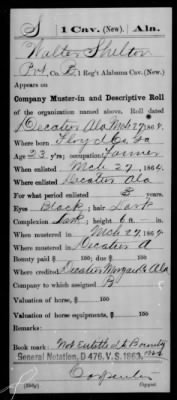 S | 1 Cav. (New). | Ala.
Walter Shelton
Pvt, Co. B, 1 Reg't Alabama Cav. (New.)
Appears on
Company Muster-in and Descriptive Roll
of the organization named above. Roll dated
Decatur Ala Mch 27, 1864.
Where born Floyd Co. Ga
Age 23 y'rs; occupation Farmer
When enlisted Mch 27, 1864.
Where enlisted Decatur Ala
For what period enlisted 3 years.
Eyes Black; hair Dark
Complexion Dark; height 6 ft. in.
When mustered in Mch 27, 1864
Where mustered in Decatur A
Bounty paid $ 100; due $ 100
Where credited Decatur Morgan Co Ala
Company to which assigned B
Valuation of horse, $ 100
Valuation of horse equipments, $ 100
Remarks:
Book mark: Not Entitled to Bounty
General Notation, D 476. V. S. 1863,
Carpenter
Copyist.